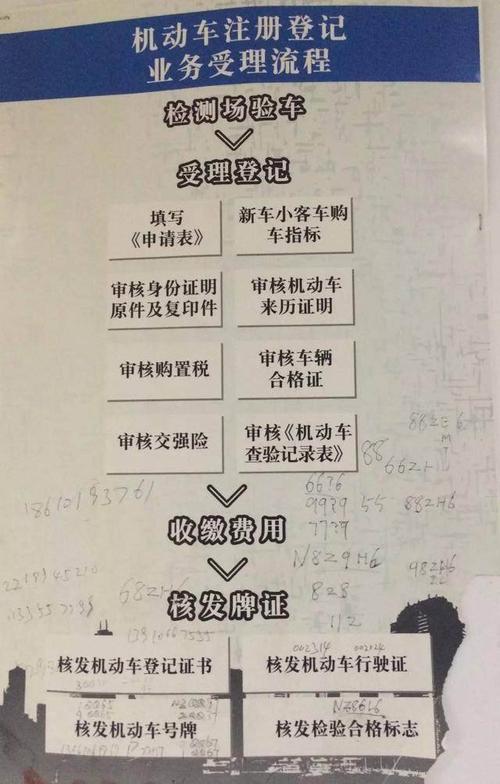 机动车注册登记
业务受理流程
检测场验车
受理登记
填写
《申请表》
新车小客车购
车指标
审核身份证明
原件及复印件
审核机动车
来历证明
审核购置税
审核车辆
合格证
审核交强险
审核《机动车
查验记录表》
88
662H
6676
9979
55
882H6
7779
18610193761
收缴费用
N8Z9H6
828
682H6
核发牌证
112
核发机动车登记证书
002314
核发机动车行驶证
核发机动车号牌
NZ86L6
核发检验合格标志